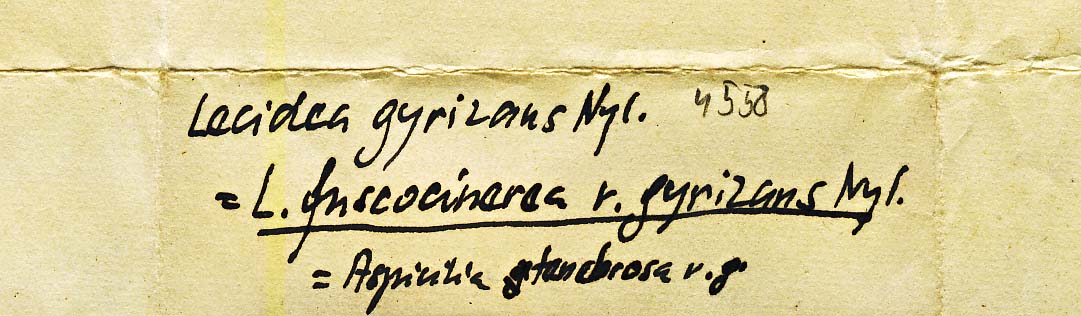 Lecidea gyrizans Nyl. 4558
= L. fuscocinerea v. gyrizans Nyl.
= Aspicilia tenebrosa v. g.